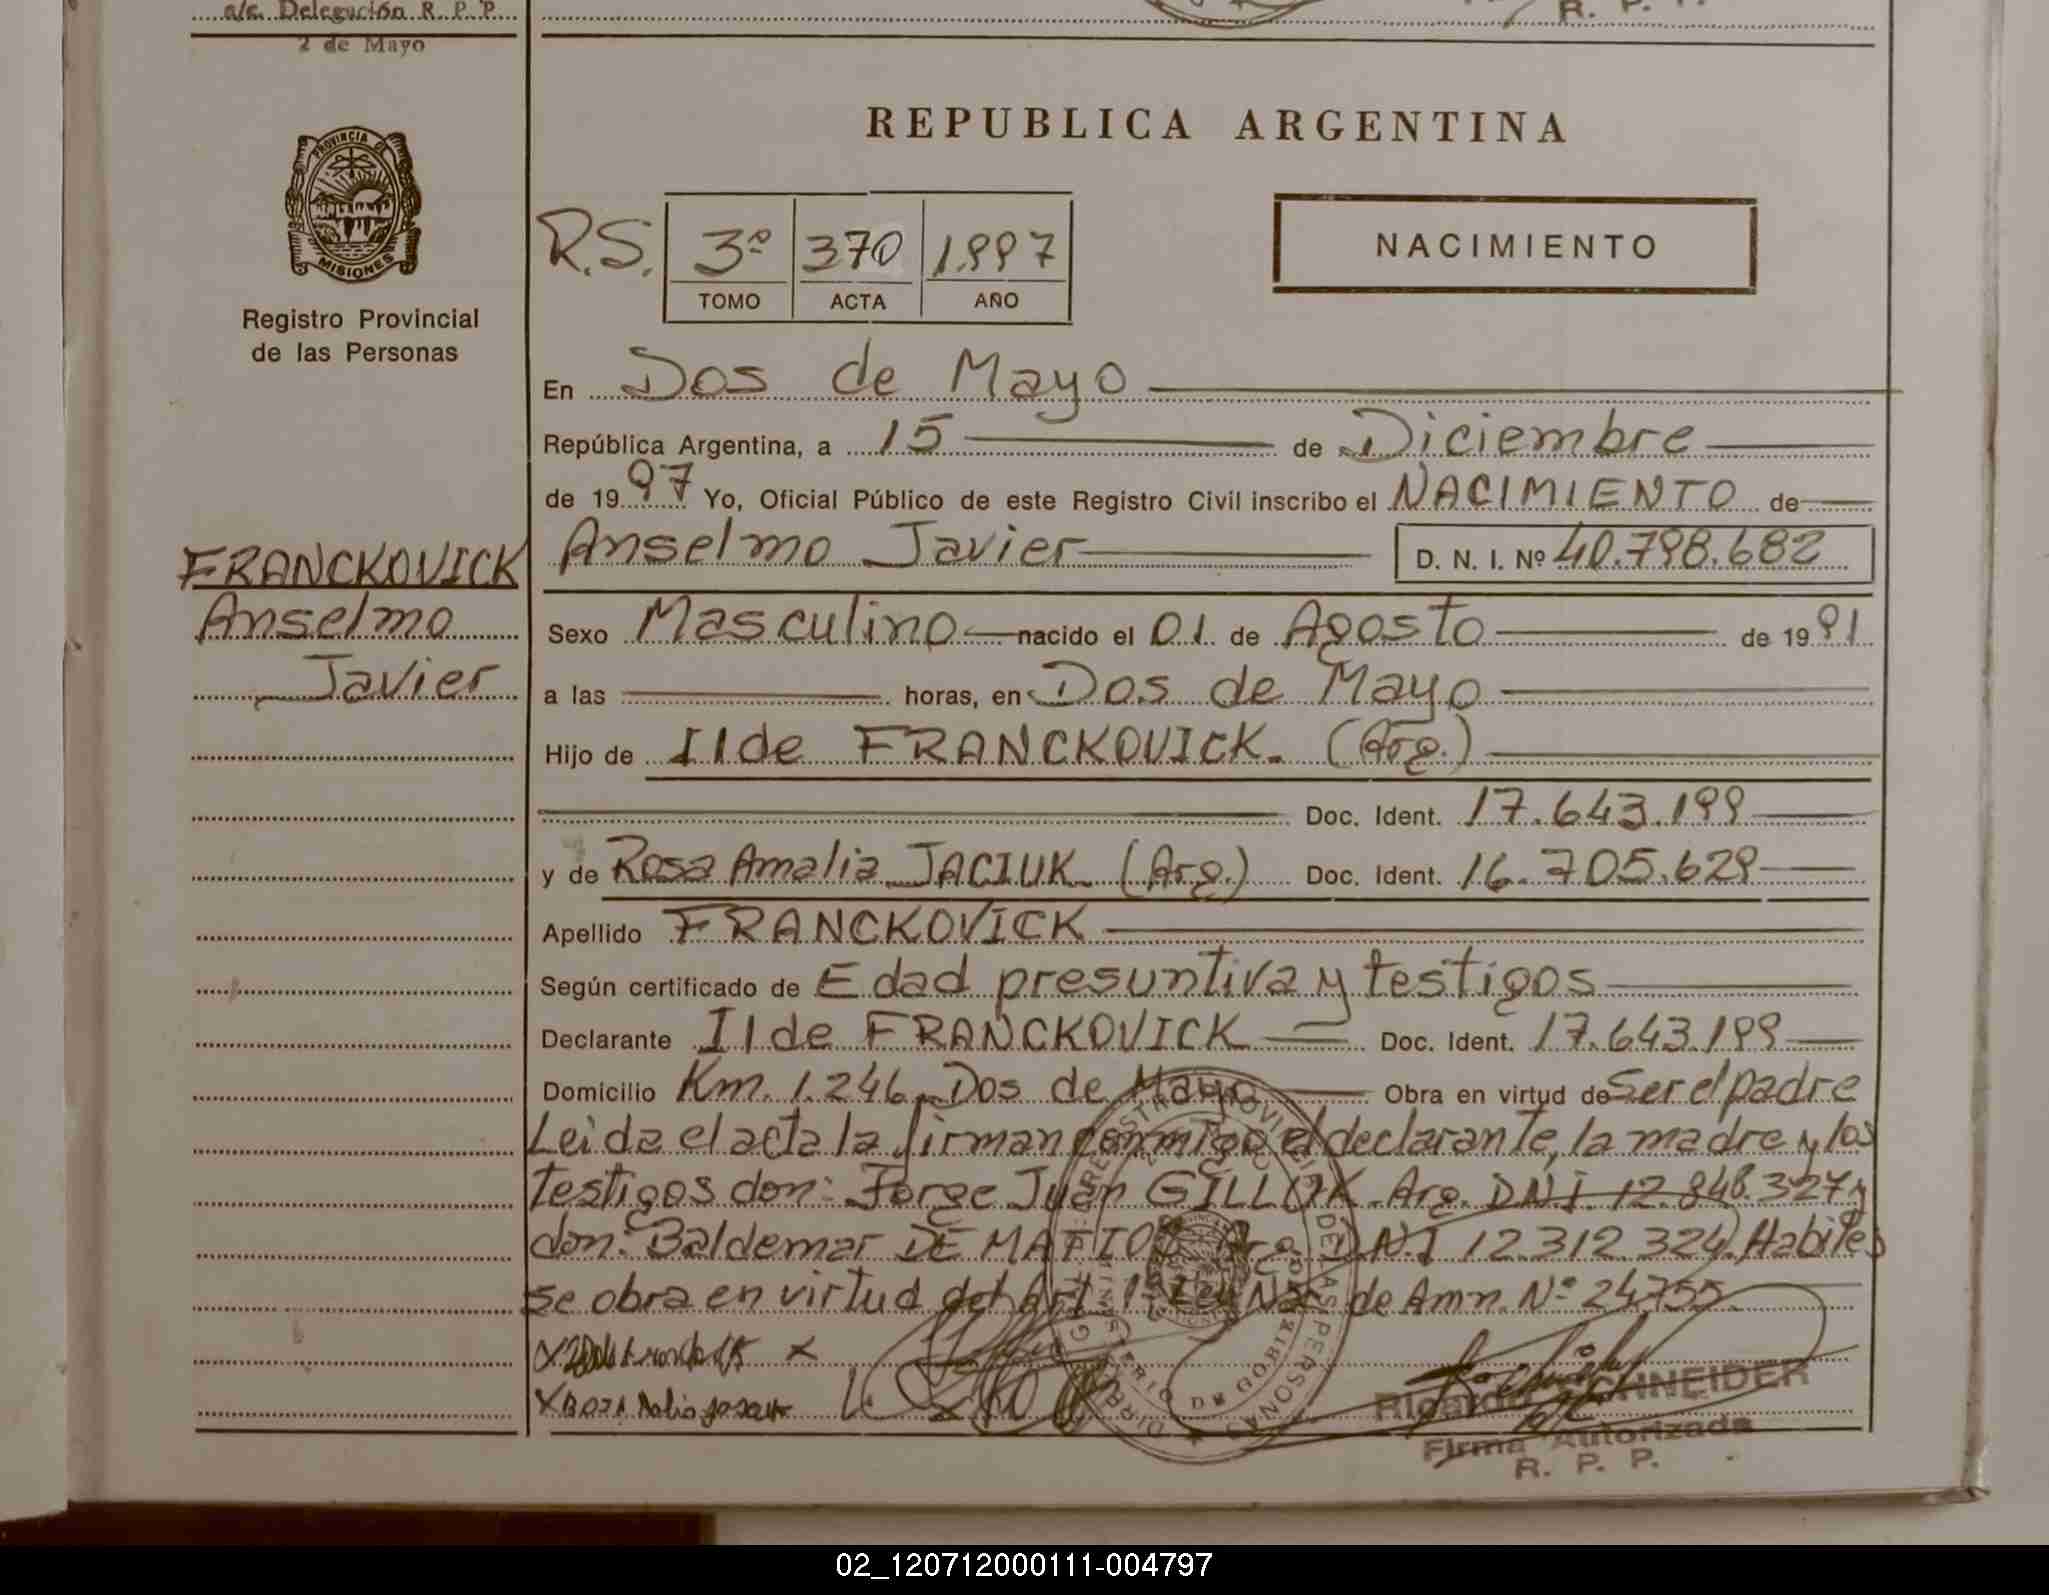 a/c. Delegación R. P. P.
2 de Mayo
R. P. P.
PROVINCIA DE
MISIONES
Registro Provincial
de las Personas
REPUBLICA ARGENTINA
R.S. 3º 370 1.997
TOMO ACTA AÑO
NACIMIENTO
En Dos de Mayo
República Argentina, a 15 de Diciembre
de 1997 Yo, Oficial Público de este Registro Civil inscribo el NACIMIENTO de
FRANCKOVICK
Anselmo
Javier
Anselmo Javier D. N. I. Nº 40.798.682
Sexo Masculino nacido el 01 de Agosto de 1991
a las horas, en Dos de Mayo
Hijo de Ilde FRANCKOVICK. (Arg.)
Doc. Ident. 17.643.199
y de Rosa Amalia JACIUK (Arg.) Doc. Ident. 16.705.629
Apellido FRANCKOVICK
Según certificado de Edad presuntiva y testigos
Declarante Ilde FRANCKOVICK Doc. Ident. 17.643.199
Domicilio Km. 1.246. Dos de Mayo Obra en virtud de Ser el padre
Leida el acta la firman conmigo el declarante, la madre y los
testigos don: Jorge Juan GILLUK. Arg. DNI. 12.848.327 y
don: Baldemar DE MATTOS Arg. D.N.I 12.312.324) Habiles
se obra en virtud del Art. 1º Ley Nac. de Amn. Nº 24755.
Ricardo SCHNEIDER
Firma Autorizada
R. P. P.
02_120712000111-004797